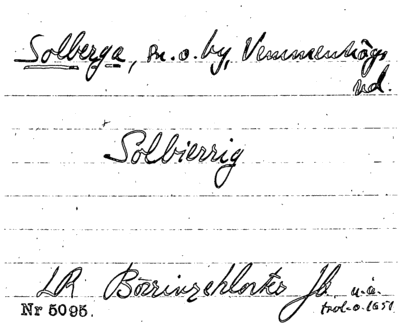 Solberga, sn. o. by, Vemmenhögs
hd.
Solbierrig
LR Börringeklosters Jb u.å.
trol. o. 1651
Nr 5095.